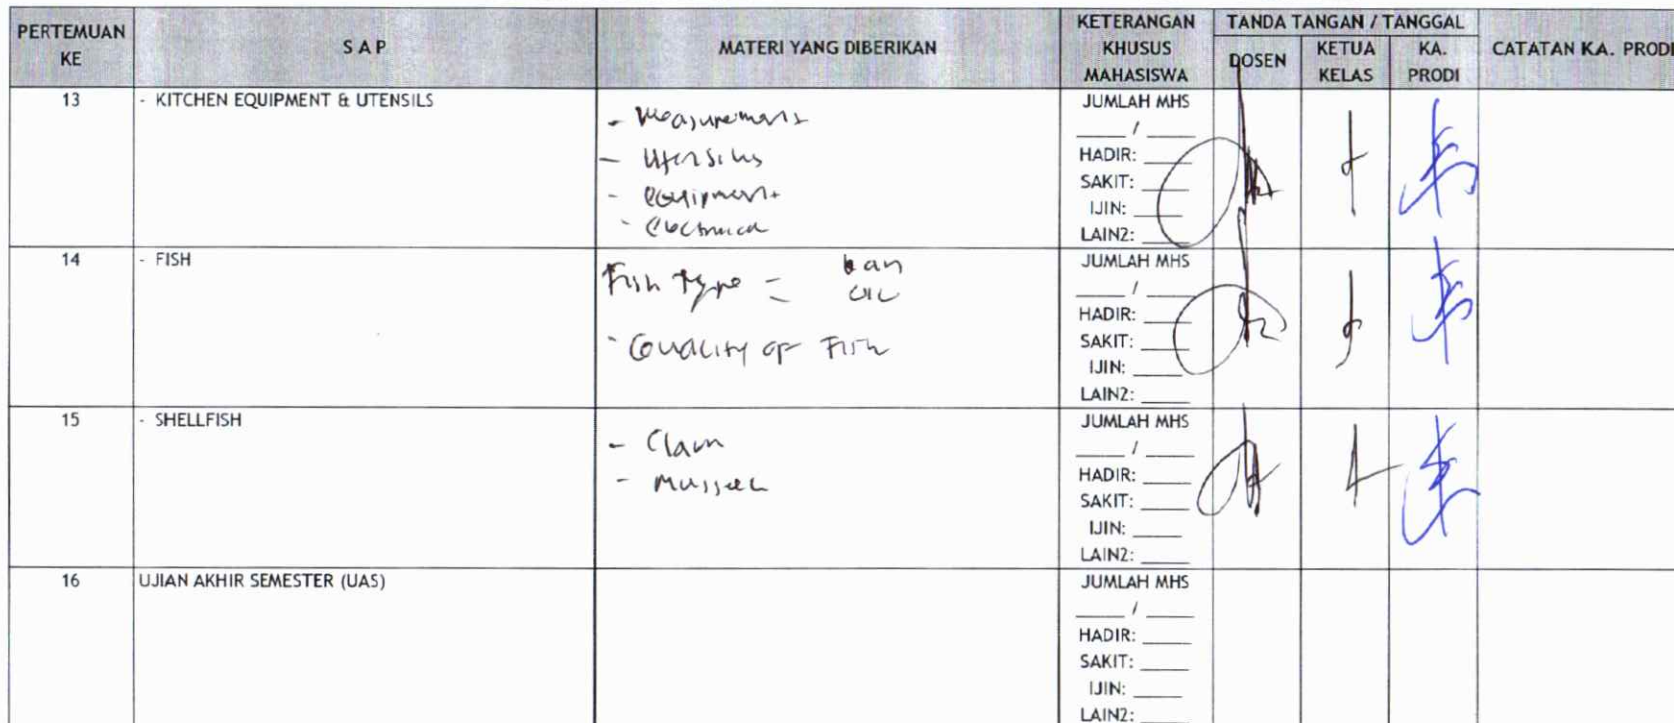 PERTEMUAN KE
S A P
MATERI YANG DIBERIKAN
KETERANGAN KHUSUS MAHASISWA
TANDA TANGAN / TANGGAL
DOSEN
KETUA KELAS
KA. PRODI
CATATAN K.A. PRODI
13
- KITCHEN EQUIPMENT & UTENSILS
- Measurements
- Utensils
- equipment
- electrical
JUMLAH MHS
____ / ____
HADIR: ____
SAKIT: ____
IJIN: ____
LAIN2: ____
14
- FISH
Fish Type -
- Quality of Fish
JUMLAH MHS
____ / ____
HADIR: ____
SAKIT: ____
IJIN: ____
LAIN2: ____
15
- SHELLFISH
- Clam
- Mussel
JUMLAH MHS
____ / ____
HADIR: ____
SAKIT: ____
IJIN: ____
LAIN2: ____
16
UJIAN AKHIR SEMESTER (UAS)
JUMLAH MHS
____ / ____
HADIR: ____
SAKIT: ____
IJIN: ____
LAIN2: ____